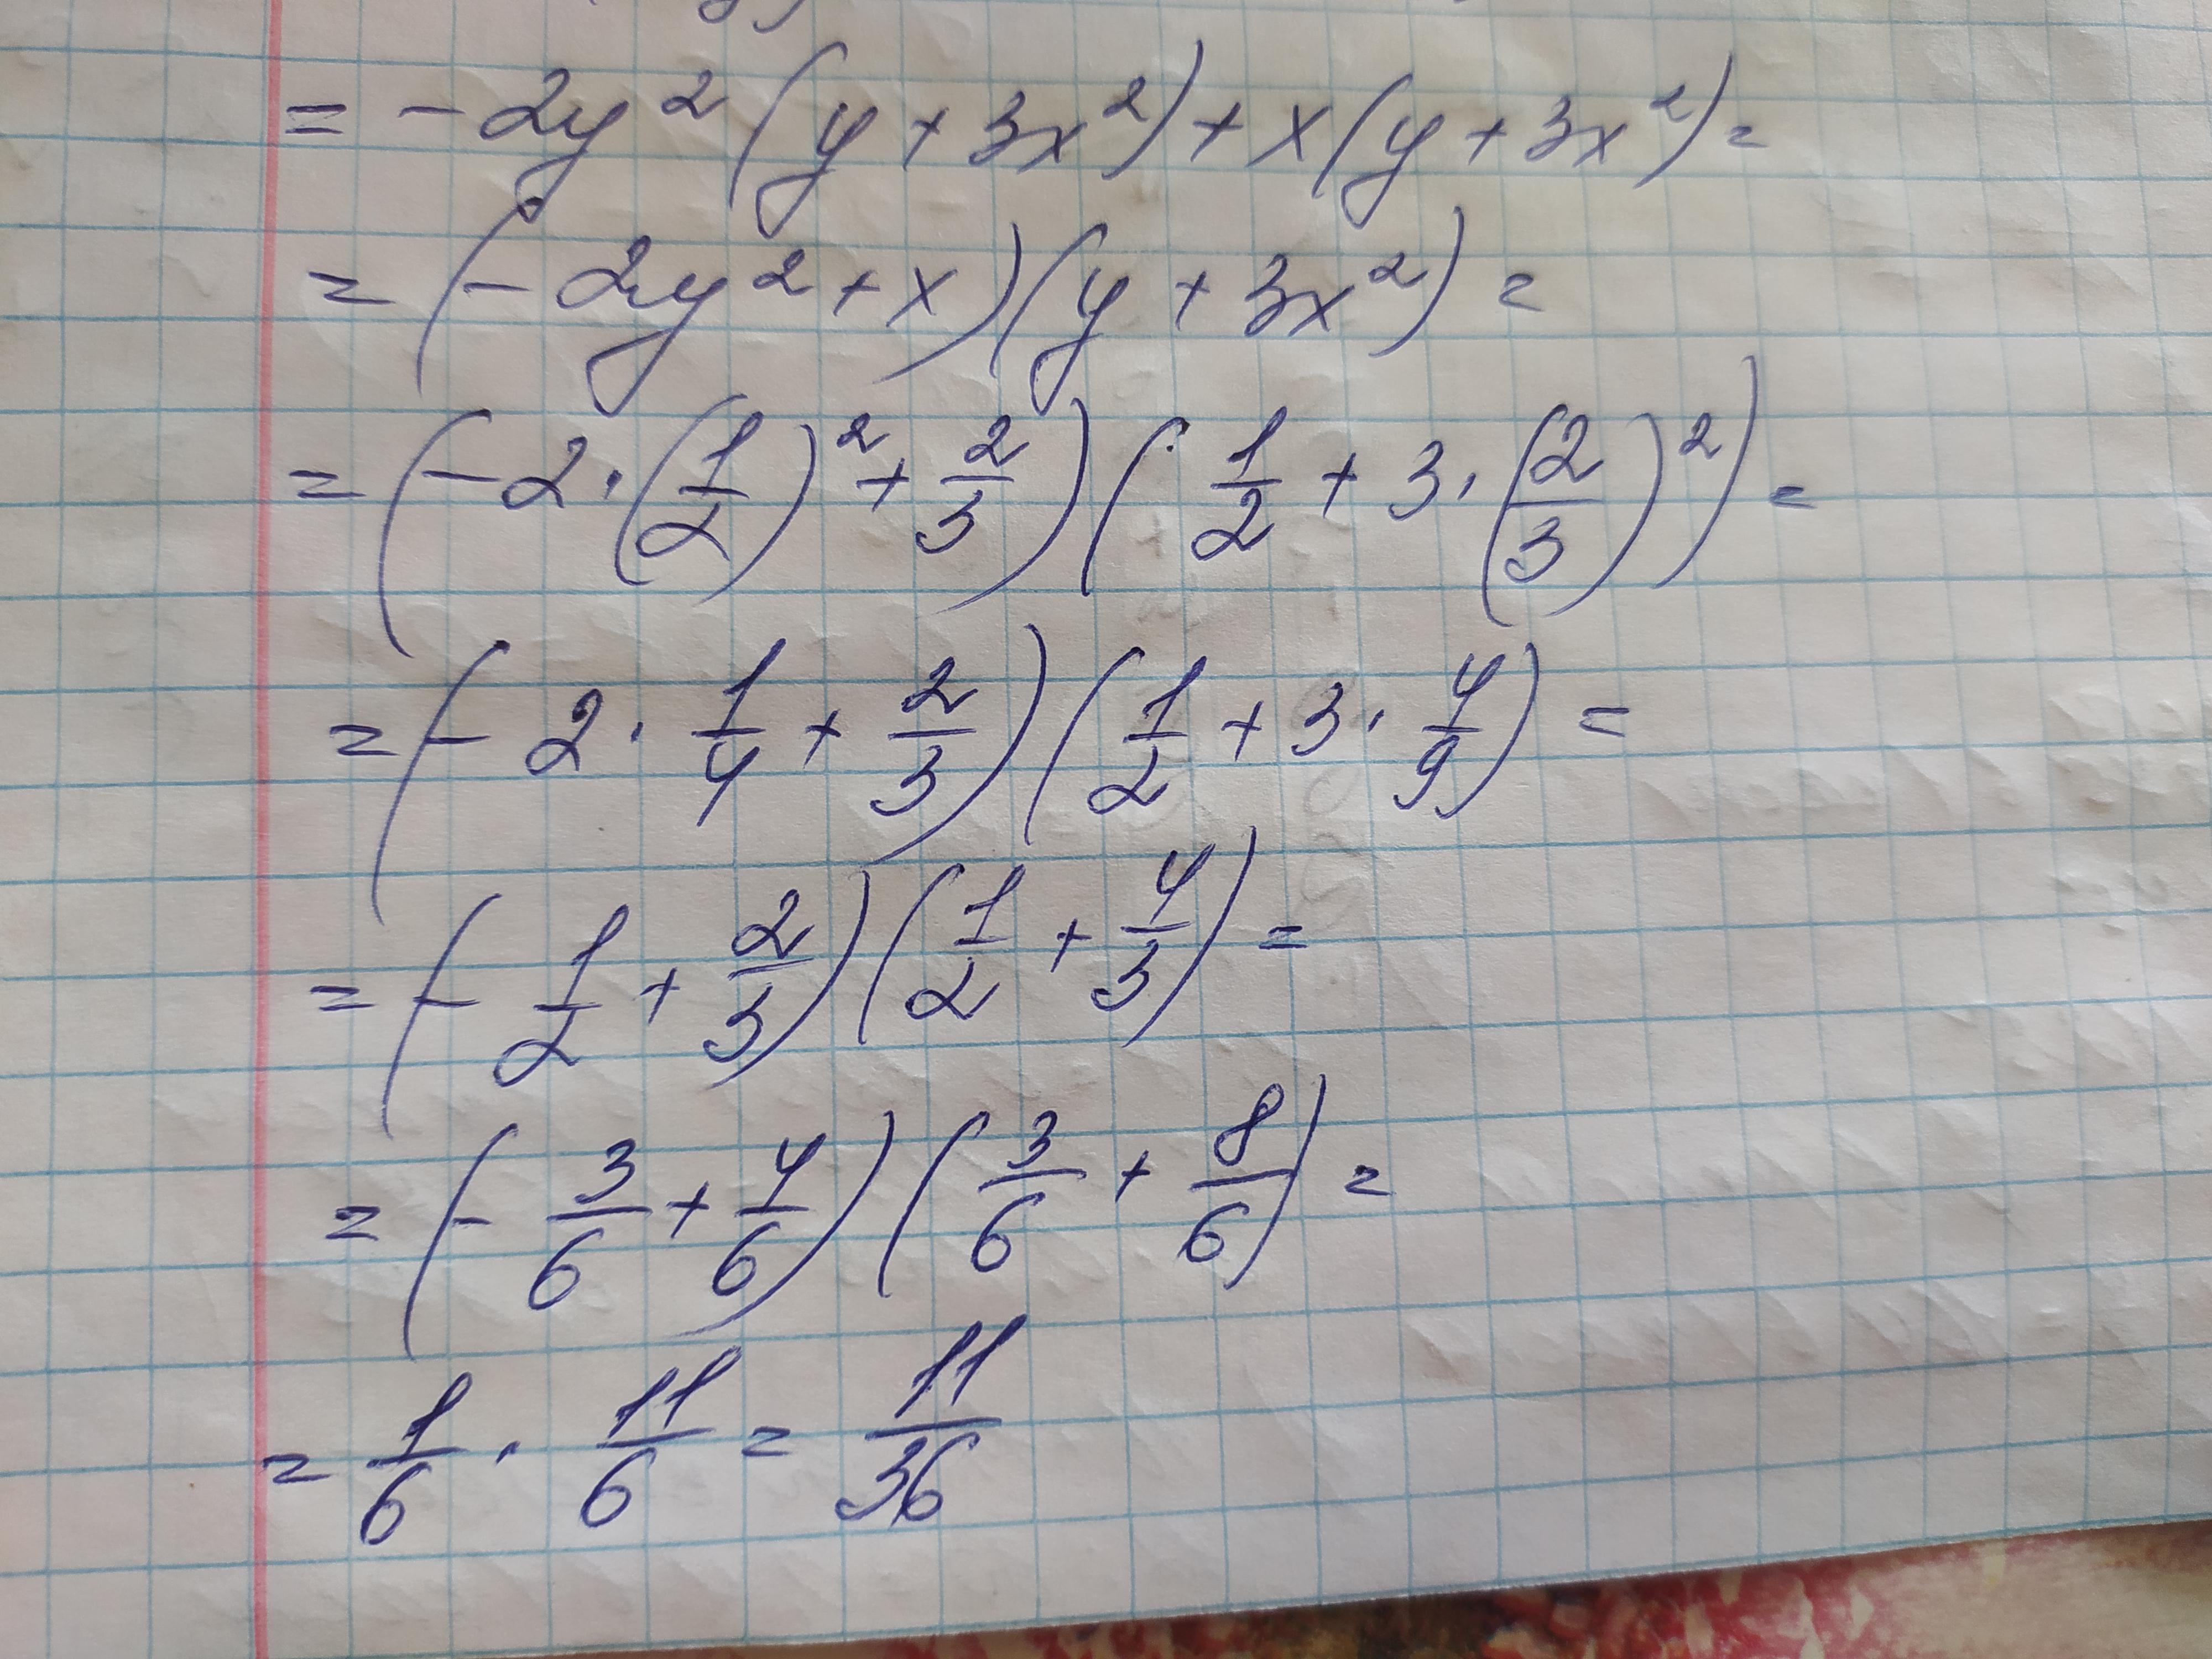 = -2y²(y + 3x²) + x(y + 3x²) =
= (-2y² + x)(y + 3x²) =
= (-2 · (1/2)² + 2/3)(1/2 + 3 · (2/3)²) =
= (-2 · 1/4 + 2/3)(1/2 + 3 · 4/9) =
= (-1/2 + 2/3)(1/2 + 4/3) =
= (-3/6 + 4/6)(3/6 + 8/6) =
= 1/6 · 11/6 = 11/36